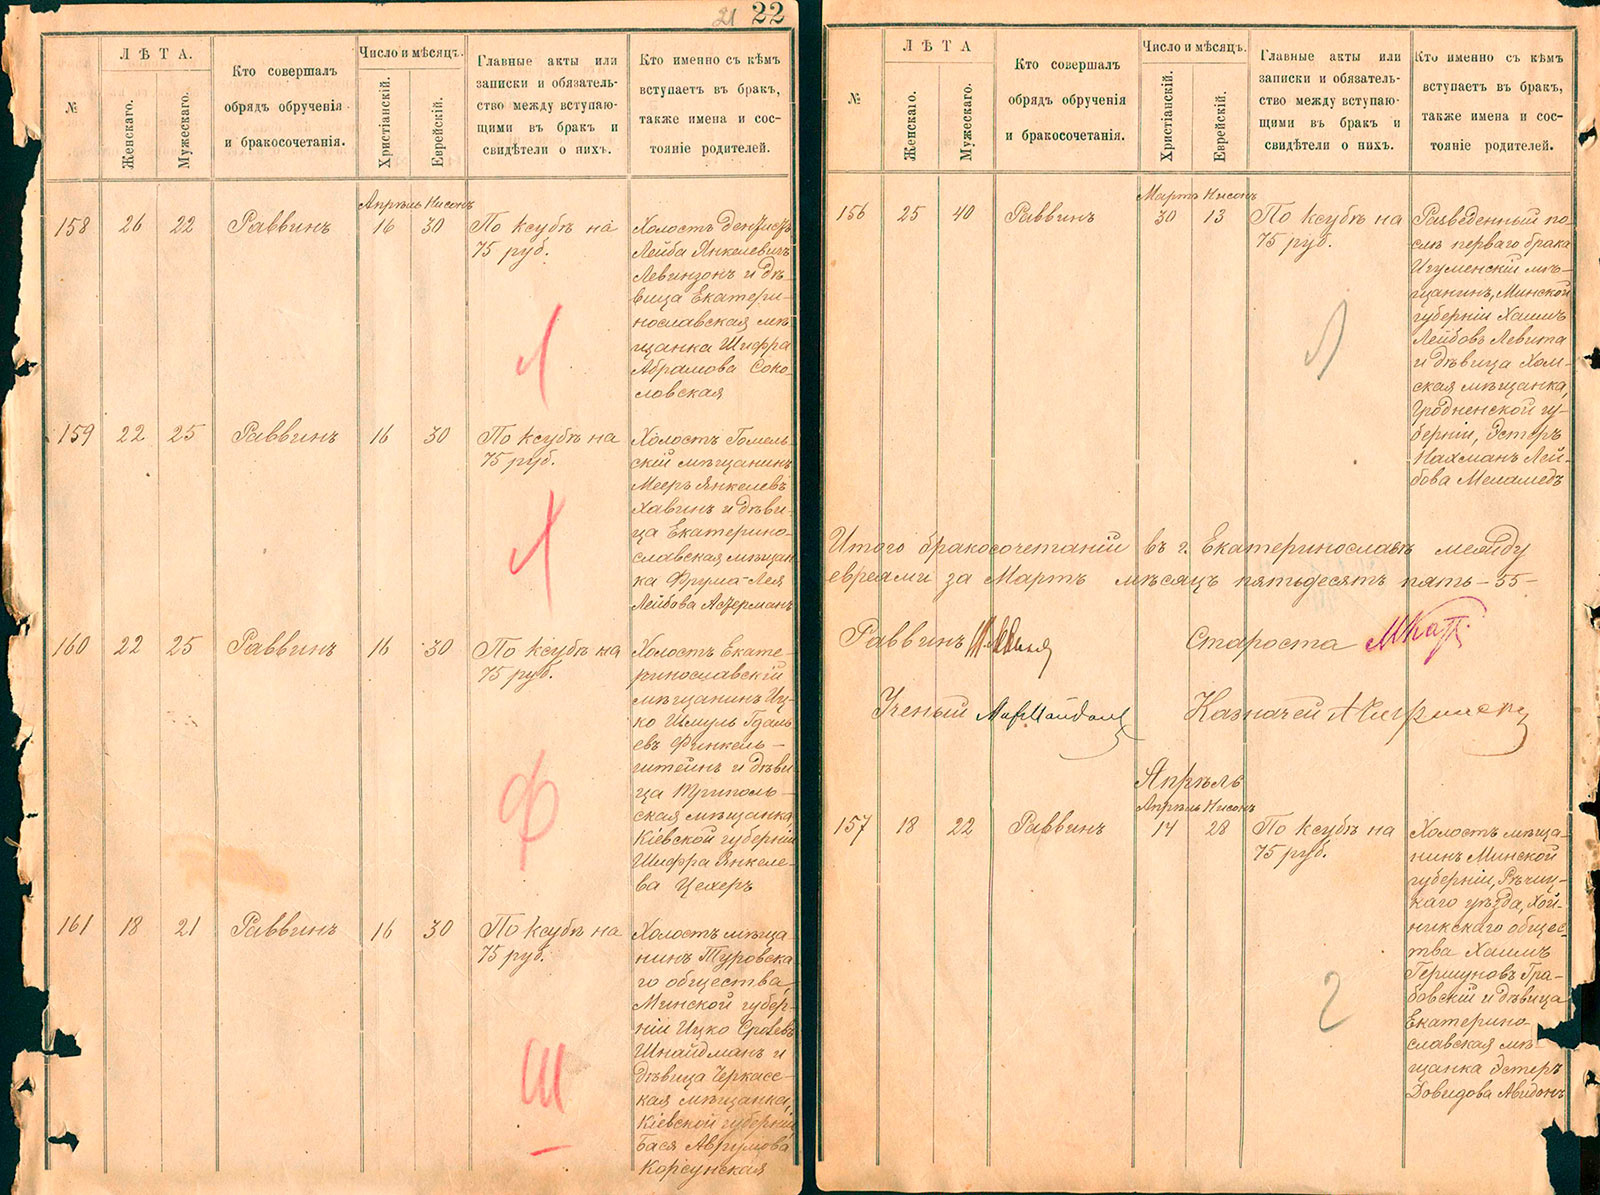 21 22
№
ЛѢТА.
Женскаго.
Мужескаго.
Кто совершалъ
обрядъ обрученія
и бракосочетанія.
Число и мѣсяцъ.
Христіанскій.
Еврейскій.
Главные акты или
записки и обязатель-
ство между вступаю-
щими въ бракъ и
свидѣтели о нихъ.
Кто именно съ кѣмъ
вступаетъ въ бракъ,
также имена и сос-
тояніе родителей.
Апрѣль Нисонъ
158 26 22 Раввинъ 16 30
По ксубѣ на
75 руб.
Л
Холостъ
Лейба Янкелевичъ
Левинзонъ и дѣ-
вица Екатери-
нославская мѣ-
щанка Шифра
Абрамова Соко-
ловская
159 22 25 Раввинъ 16 30
По ксубѣ на
75 руб.
Х
Холостъ Гомель-
скій мѣщанинъ
Мееръ Янкелевъ
Хавинъ и дѣви-
ца Екатерино-
славская мѣщан
ка Фрума-Лея
Лейбова
160 22 25 Раввинъ 16 30
По ксубѣ на
75 руб.
Ф
Холостъ Екате-
ринославскій
мѣщанинъ Иц-
ко Шмуль Гдаль
евъ Финкель-
штейнъ и дѣви
ца Триполь-
ская мѣщанка
Кіевской губерніи
Шифра Янкеле-
ва Цехеръ
161 18 21 Раввинъ 16 30
По ксубѣ на
75 руб.
Ш
Холостъ мѣща-
нинъ Туровска-
го общества,
Минской губер-
ніи Ицко Сролевъ
Шнайдманъ и
дѣвица Черкасс-
кая мѣщанка,
Кіевской губерніи
Бася Аврумова
Корсунская
№
ЛѢТА
Женскаго.
Мужескаго.
Кто совершалъ
обрядъ обрученія
и бракосочетанія.
Число и мѣсяцъ.
Христіанскій.
Еврейскій.
Главные акты или
записки и обязатель-
ство между вступаю-
щими въ бракъ и
свидѣтели о нихъ.
Кто именно съ кѣмъ
вступаетъ въ бракъ,
также имена и сос-
тояніе родителей.
Мартъ Нисонъ
156 25 40 Раввинъ 30 13
По ксубѣ на
75 руб.
Л
Разведенный по-
слѣ перваго брака
Игуменскій мѣ-
щанинъ, Минской
губерніи Хаимъ
Лейбовъ Левита
и дѣвица Хом-
ская мѣщанка,
Гродненской гу-
берніи, Эстеръ
Нахманъ Лей-
бова Меламедъ
Итого бракосочетаній въ г. Екатеринославѣ между
евреями за Мартъ мѣсяцъ пятьдесятъ пять-55-
Раввинъ
Староста
Ученый
Казначей
Апрѣль
Апрѣль Нисонъ
157 18 22 Раввинъ 14 28
По ксубѣ на
75 руб.
Г
Холостъ мѣща-
нинъ Минской
губерніи, Рѣчиц-
каго уѣзда, Хой-
никскаго общес-
тва Хаимъ
Гершуновъ Гра-
бовскій и дѣвица
Екатерино-
славская мѣ-
щанка Эстеръ
Довидова Авидонъ